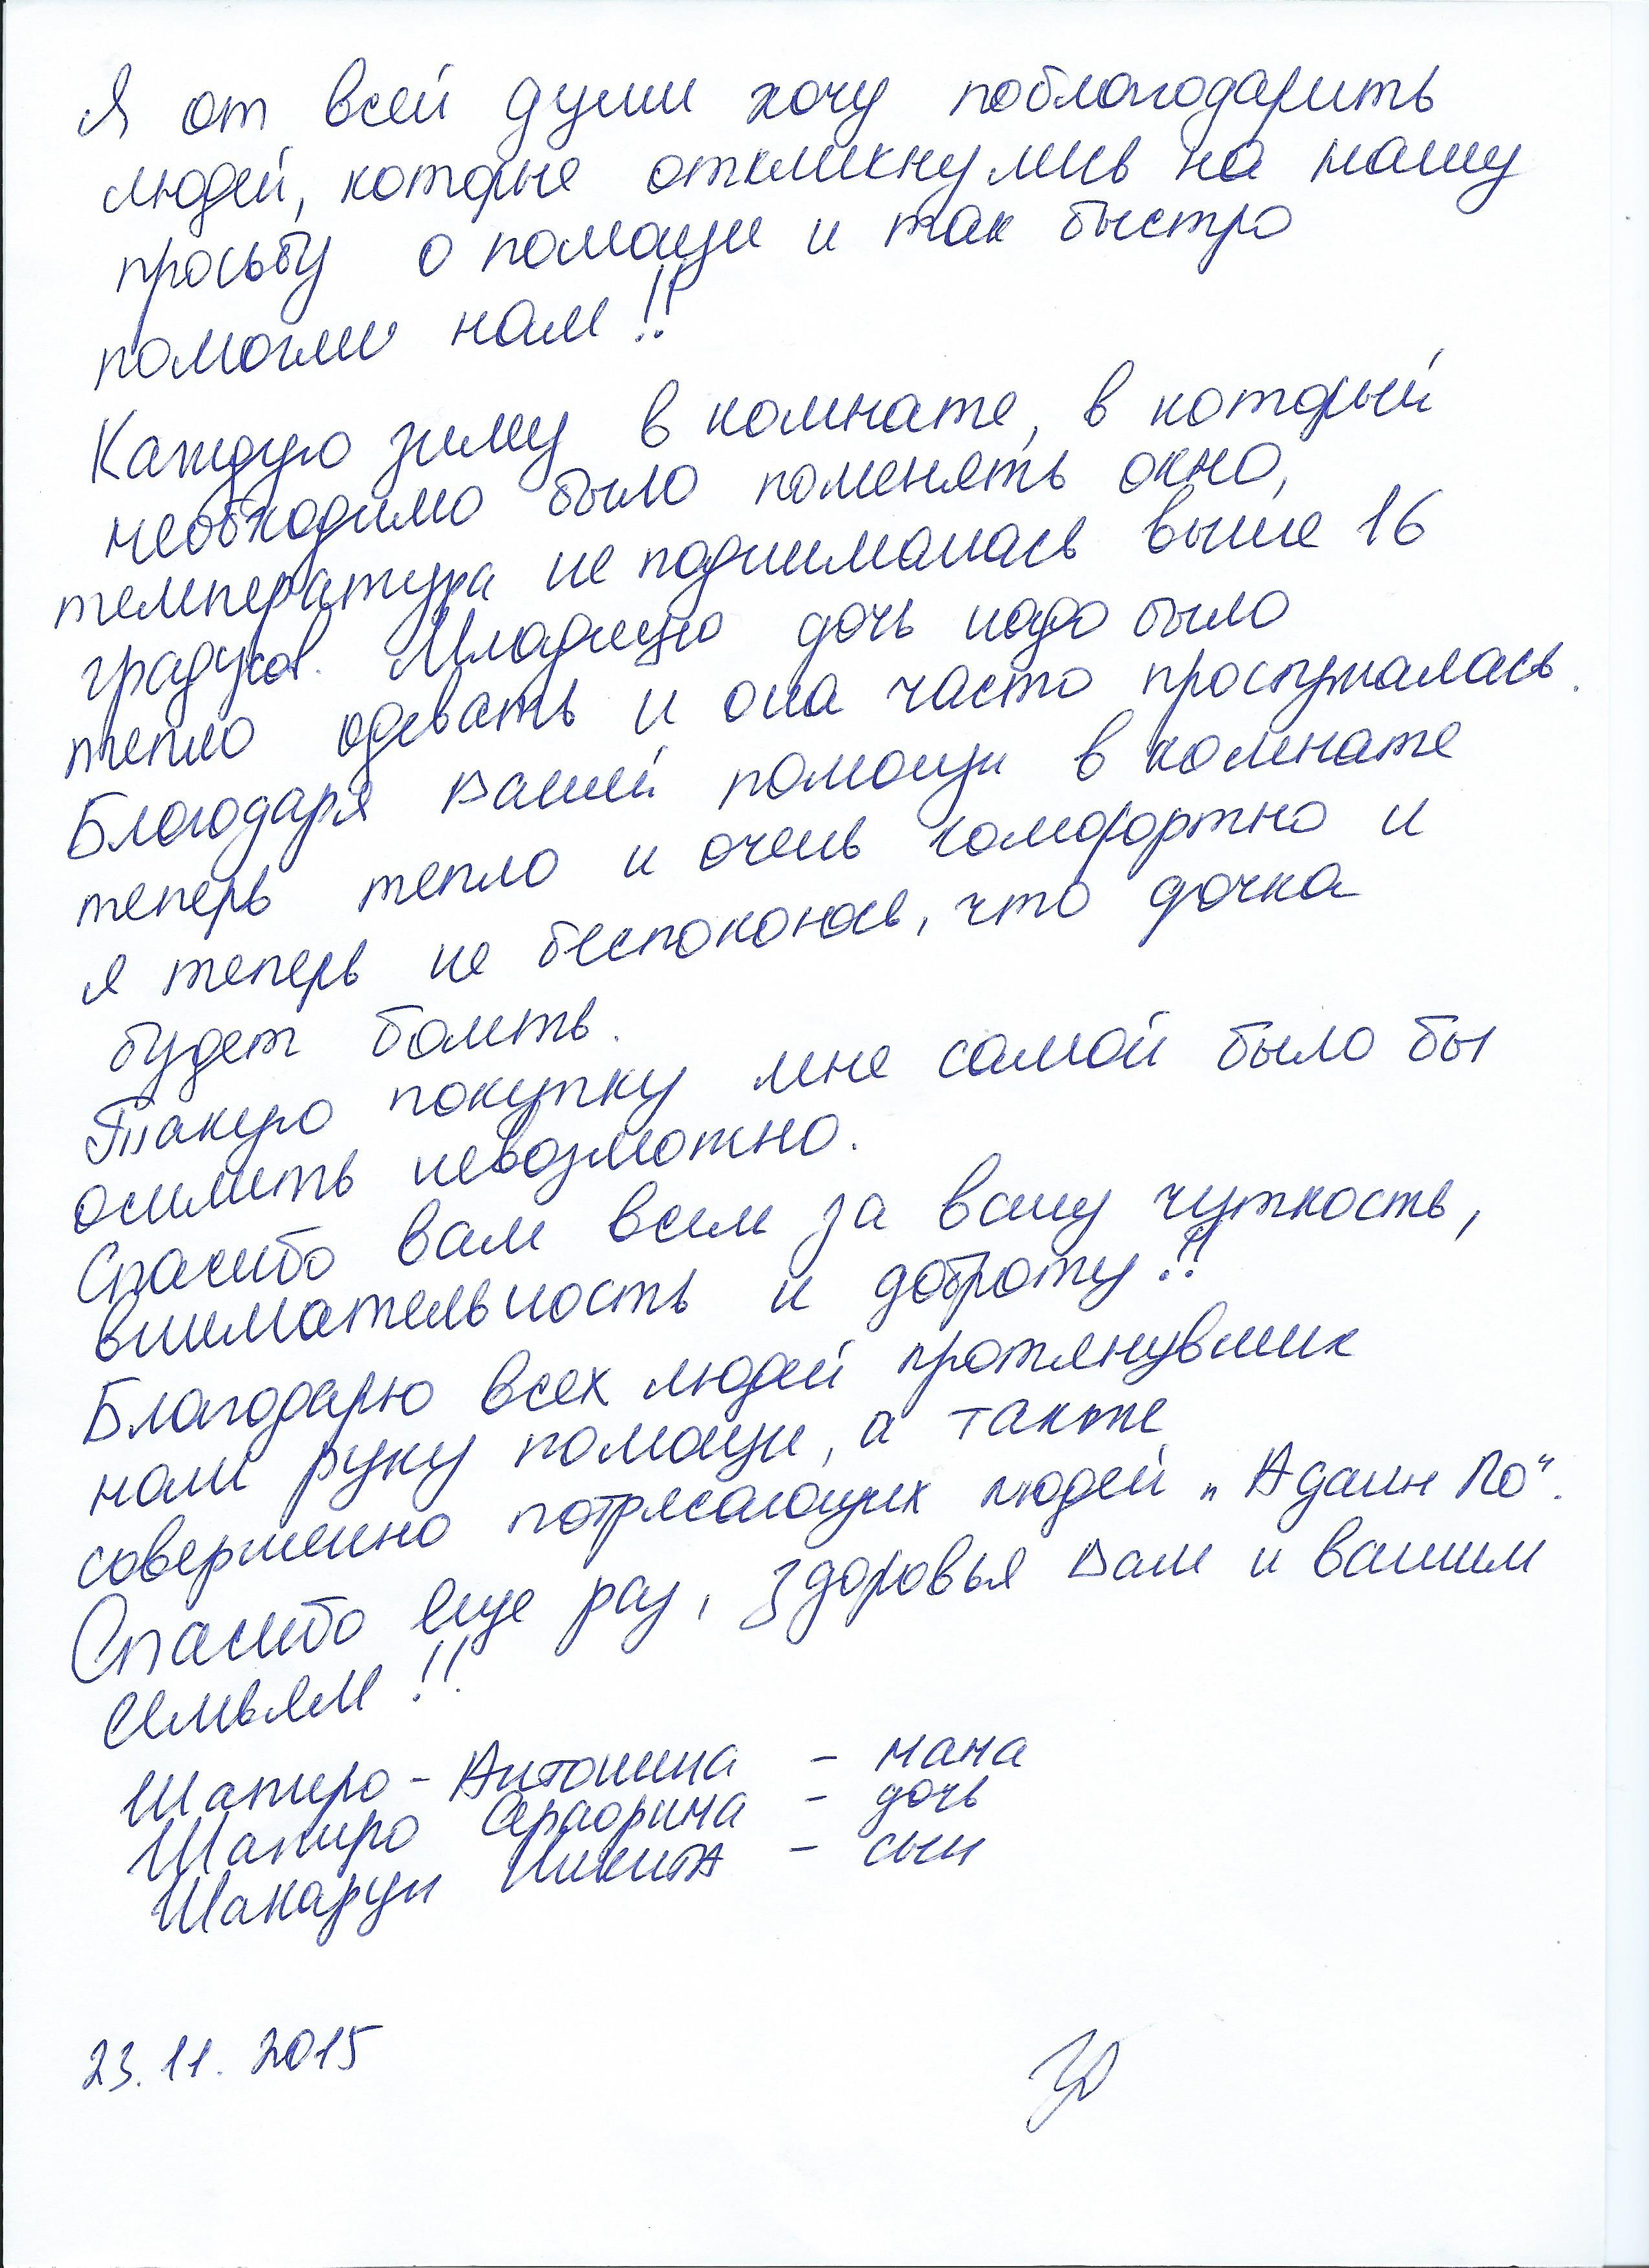 Я от всей души хочу поблагодарить
людей, которые откликнулись на нашу
просьбу о помощи и так быстро
помогли нам!!
Каждую зиму в комнате, в который
необходимо было поменять окно,
температура не поднималась выше 16
градусов. Младшую дочь надо было
тепло одевать и она часто простужалась.
Благодаря Вашей помощи в комнате
теперь тепло и очень комфортно и
я теперь не беспокоюсь, что дочка
будет болеть.
Такую покупку мне самой было бы
осилить невозможно.
Спасибо вам всем за вашу чуткость,
внимательность и доброту!!
Благодарю всех людей протянувших
нам руку помощи, а также
совершенно потрясающих людей „Адаин Ло“.
Спасибо еще раз, здоровья Вам и вашим
семьям!!
Шапиро - Антонина - мама
Шапиро Серафима - дочь
Шакарун Никита - сын
23.11.2015